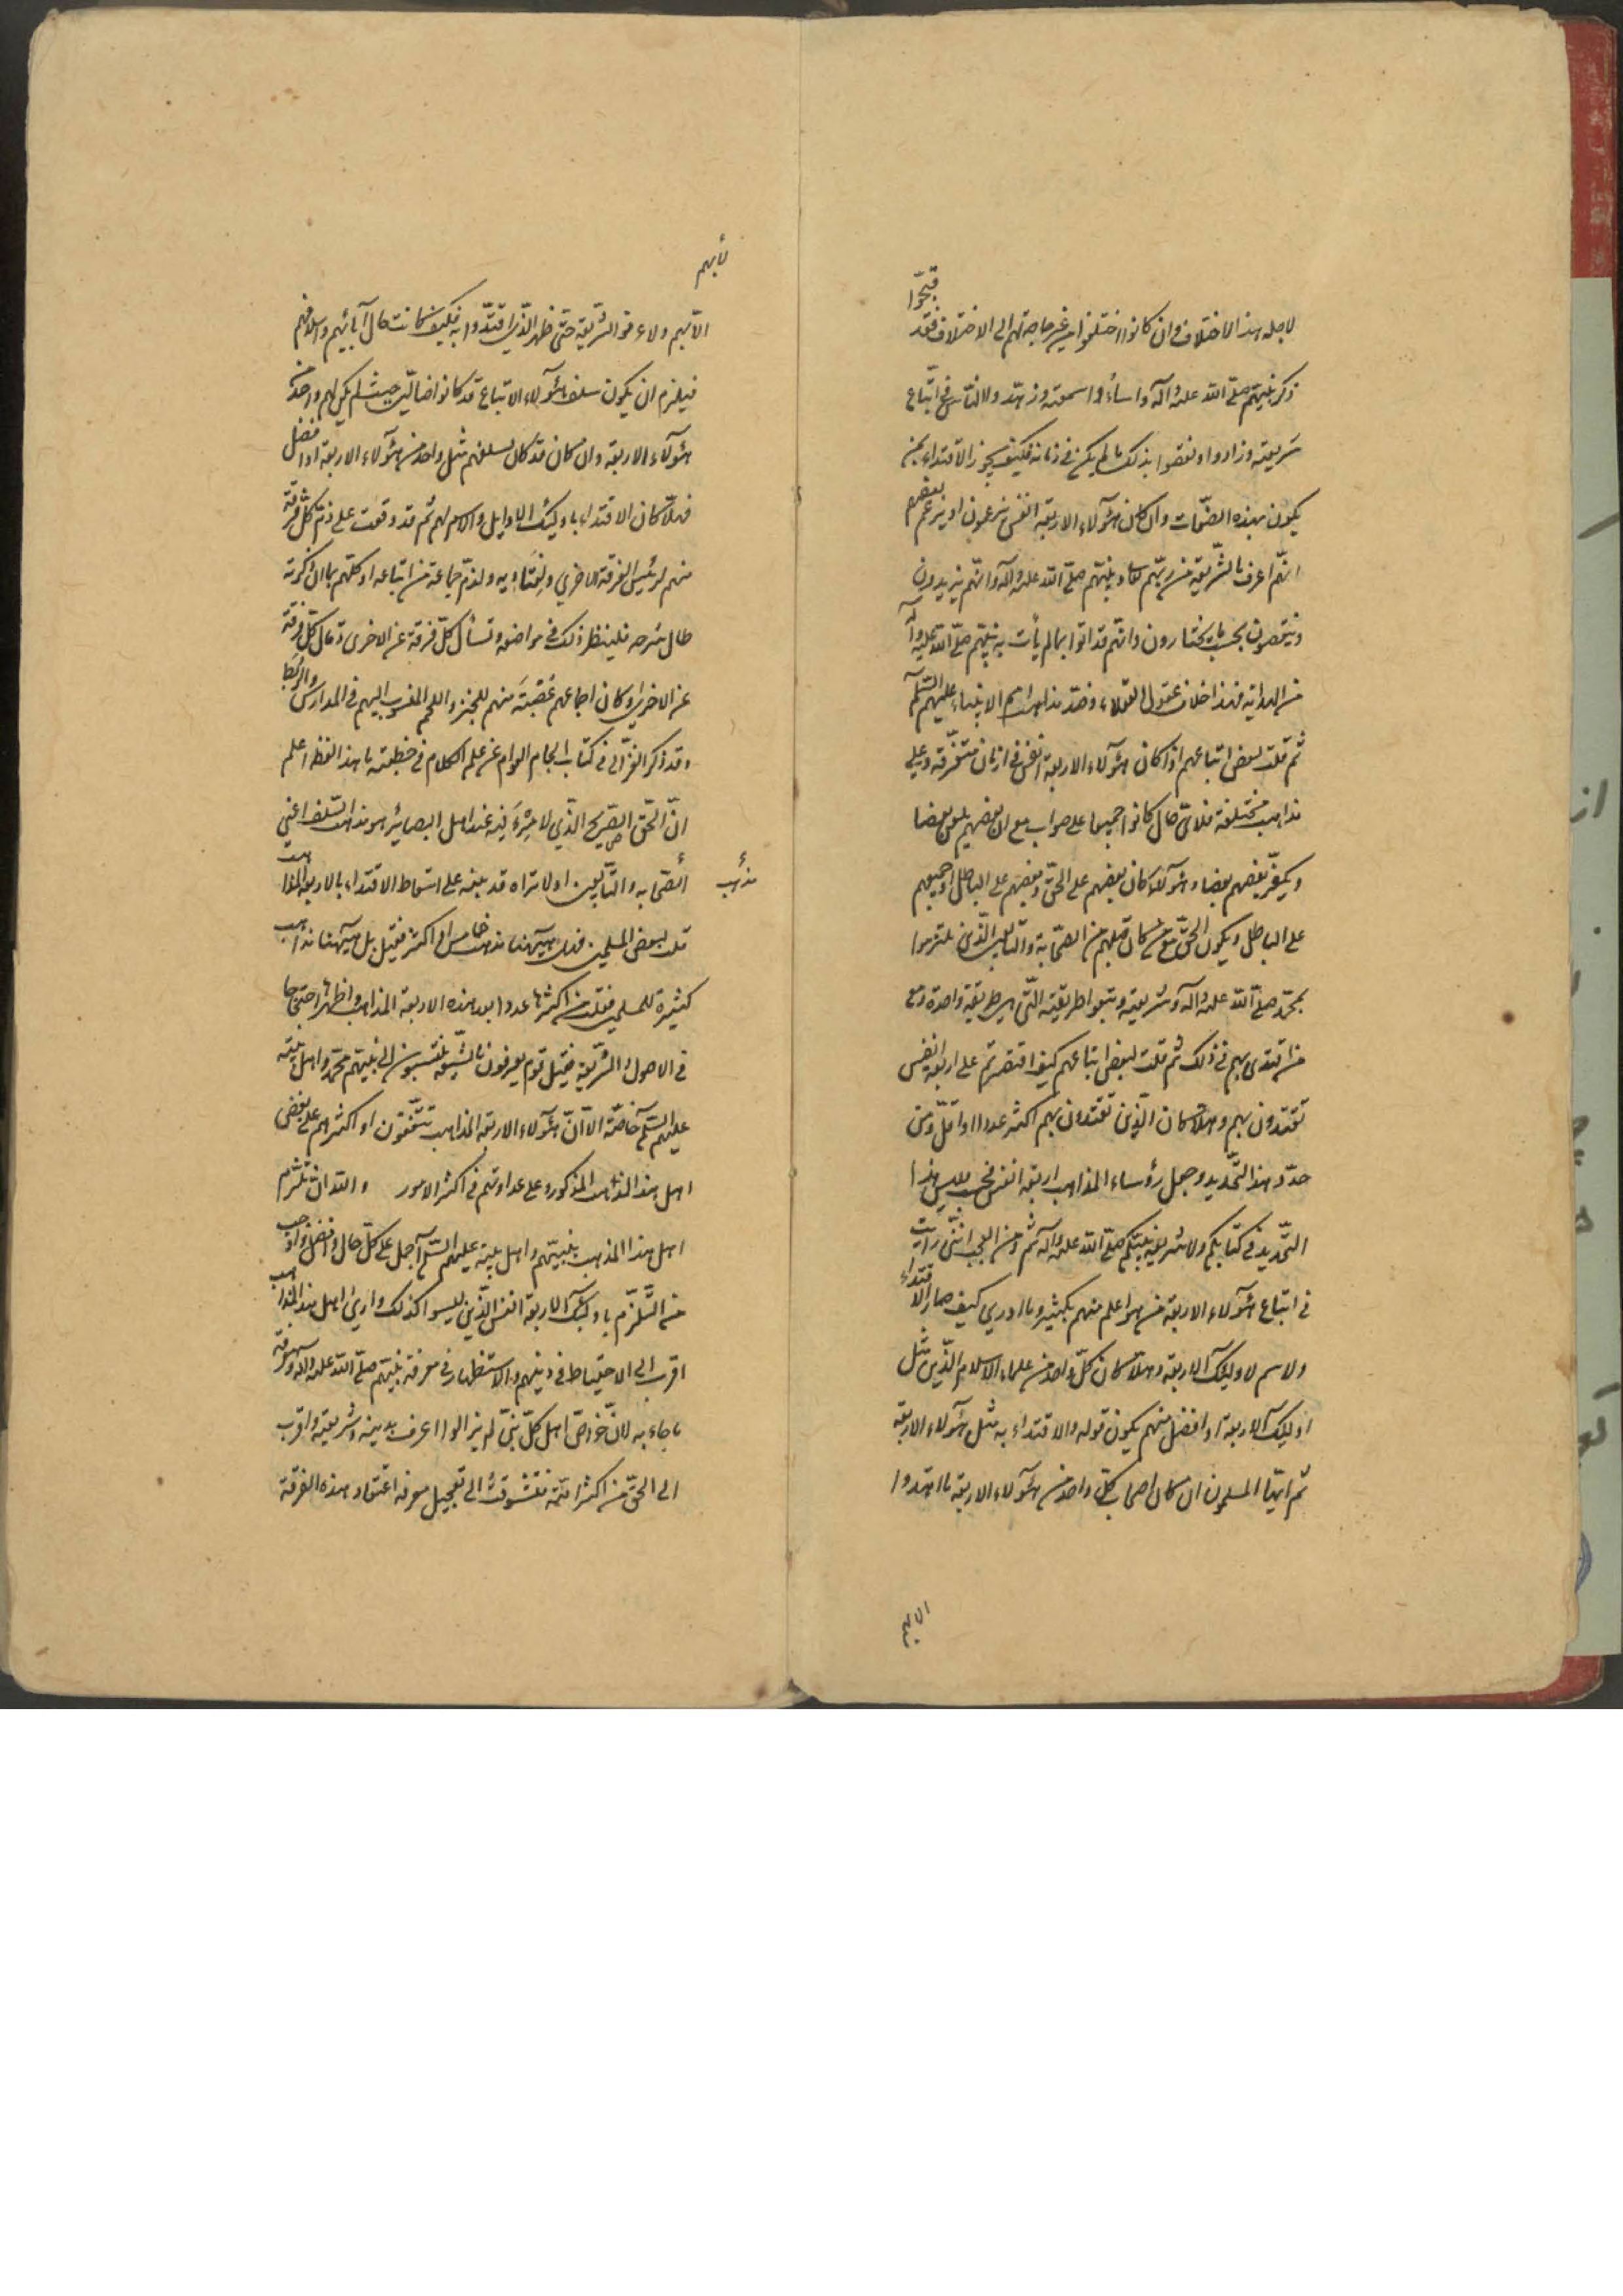 لاجله هذا الاختلاف وان كانوا اختلفوا من غير حاجة لهم الى الاختلاف فقد
قبحوا
ذكر نبيهم صلى الله عليه وآله واساؤا سمعته وزهدوا الناس في اتباع
شريعته وزادوا ونقصوا بذلك ما لم يكن في زمانه فكيف يجوز الاقتداء بمن
يكون بهذه الصفات وان كان هؤلاء الاربعة انفس يزعمون او يزعم بعضهم
انهم اعرف بالشريعة من ربهم ونبيهم صلى الله عليه وآله وانهم يزيدون
وينقصون بحسب ما يختارون وانهم قد اتوا بما لم يأت به نبيهم صلى الله عليه وآله
من الهداية فهذا خلاف عقول العقلاء وضد مذاهب امم الانبياء عليهم السلم
ثم قلت لبعض اتباعهم اذا كان هؤلاء الاربعة انفس في ازمان متفرقة وعلى
مذاهب مختلفة فلاي حال كانوا جميعا على صواب مع ان بعضهم يلعن بعضا
ويكفر بعضهم بعضا وهؤلاء كان بعضهم على الحق وبعضهم على الباطل او جميعهم
على الباطل ويكون الحق مع من كان قبلهم من الصحابة والتابعين الذين التزموا
بمحمد صلى الله عليه وآله وشريعته وتبعوا طريقته التي هي طريقة واحدة ومع
من اقتدى بهم في ذلك ثم قلت لبعض اتباعهم كيف اقتصرتم على اربعة انفس
تقتدون بهم وهلا كان الذين تقتدون بهم اكثر عددا او اقل ومن
حدد هذا التحديد وجعل رؤساء المذاهب اربعة انفس فحسب وليس هذا
التحديد في كتابكم ولا شريعة نبيكم صلى الله عليه وآله ثم ومن العجب انني رأيت
في اتباع هؤلاء الاربعة من هو اعلم منهم بكثير وما ادري كيف صار الاقتداء
والاسم لاوليك الاربعة وهلا كان كل واحد من علماء الاسلام الذين مثل
اوليك الاربعة او افضل منهم يكون قوله والاقتداء به مثل هؤلاء الاربعة
ثم ايها المسلمون ان كان اصحاب كل واحد من هؤلاء الاربعة ما اهتدوا
الا بهم
الا بهم ولا عرفوا الشريعة حتى ظهر الذين اقتدوا به فكيف كانت حال آبائهم واسلافهم
فيلزم ان يكون سلف هؤلاء الاتباع قد كانوا ضالين حيث لم يكن لهم واحد من
هؤلاء الاربعة وان كان قد كان لسلفهم مثل واحد من هؤلاء الاربعة او افضل
فهلا كان الاقتداء باوليك الاوايل والاسم لهم ثم قد وقعت على ذم كل فرقة
منهم لرئيس الفرقة الاخرى ولذم جماعة من اتباعه او كلهم ما ان ذكرته
طال شرحه فلينظر ذلك في مواضعه وتسأل كل فرقة عن الاخرى
عن الاخرى وكان اجماعهم منهم للخبز واللحم المنسوب اليهم في المدارس والربط
وقد ذكر الغزالي في كتاب الجام العوام عن علم الكلام في خطبته ما هذا لفظه اعلم
ان الحق الصريح الذي لا مرية فيه عند اهل البصائر هو مذهب السلف اعني
مذهب
الصحابة والتابعين اولا تراه قد نبه على اسقاط الاقتداء بالاربعة المذاهب
قلت لبعض المسلمين فهل ههنا مذهب خامس او اكثر فقيل بل ههنا مذاهب
كثيرة للمسلمين فقلت من اكثرها عددا بعد هذه الاربعة المذاهب واظهرها احتجاجا
في الاصول والشريعة فقيل قوم يعرفون بالشيعة ينتسبون الى نبيهم محمد واهل بيته
عليهم السلم خاصة الا ان هؤلاء الاربعة المذاهب متفقون او اكثرهم على بغض
اهل هذا المذهب المذكور وعلى عداوتهم في اكثر الامور والله ان تلزم
اهل هذا المذهب بنبيهم واهل بيته عليهم السلم اجمل على كل حال وافضل واوجب
من التلزم باوليك الاربعة انفس الذين ليسوا كذلك وارى اهل هذا المذهب
اقرب الى الاحتياط في دينهم والاستظهار في معرفة نبيهم صلى الله عليه وآله ومعرفة
ما جاء به لان خواص اهل كل نبي لم يزالوا اعرف بدينه وشريعته واقرب
الى الحق من اكثر امته فتشوقت الى تعجيل معرفة اعتقاد هذه الفرقة